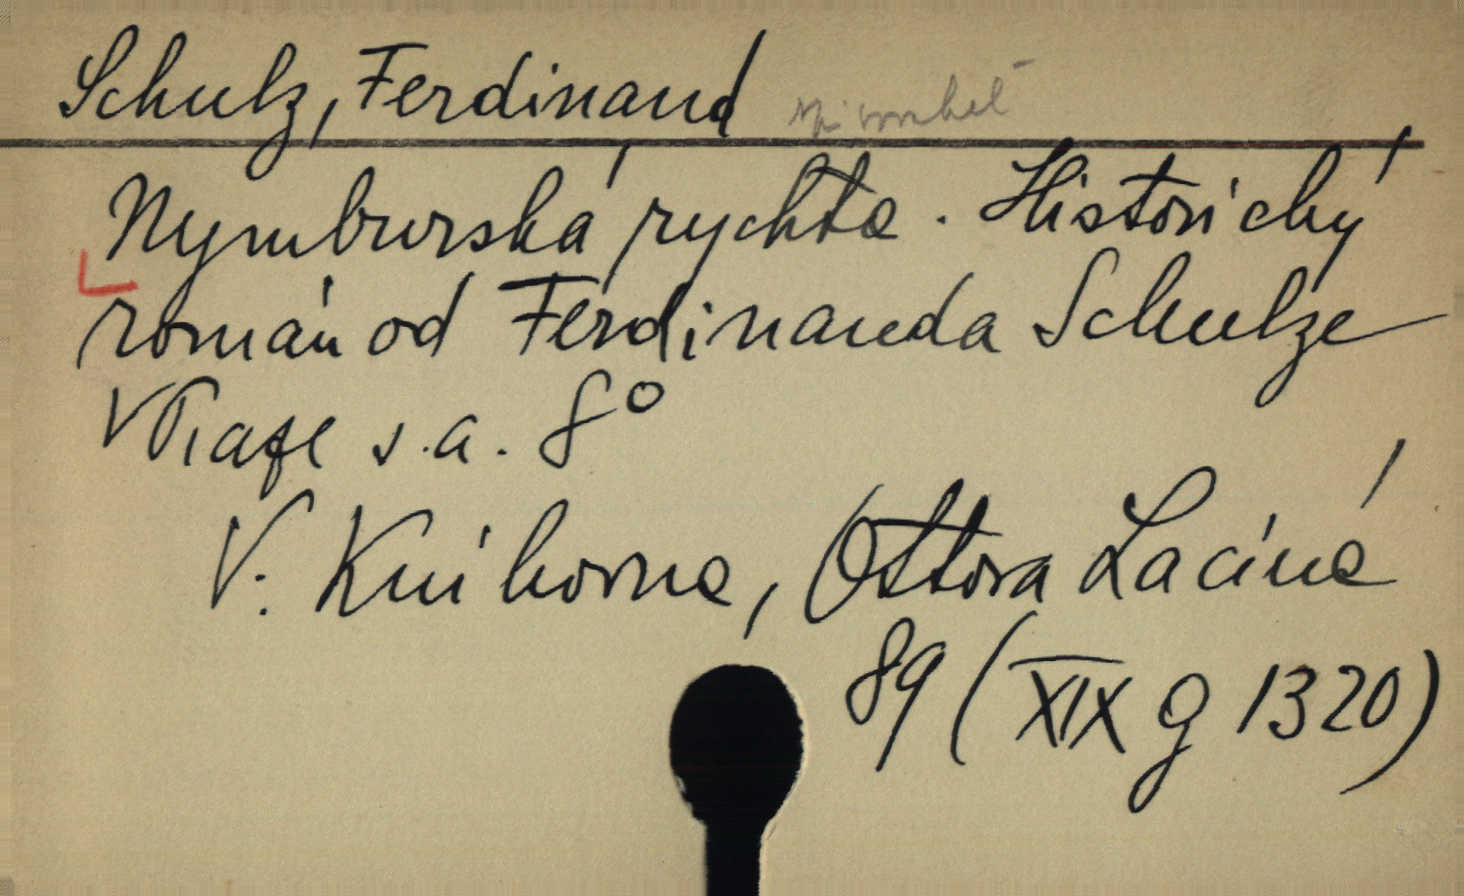 Schulz, Ferdinand
Nymburská rychta. Historický
román od Ferdinanda Schulze
V Praze s.a. 8°
V: Knihovna, Ottova Laciná
89 (XIX g 1320)